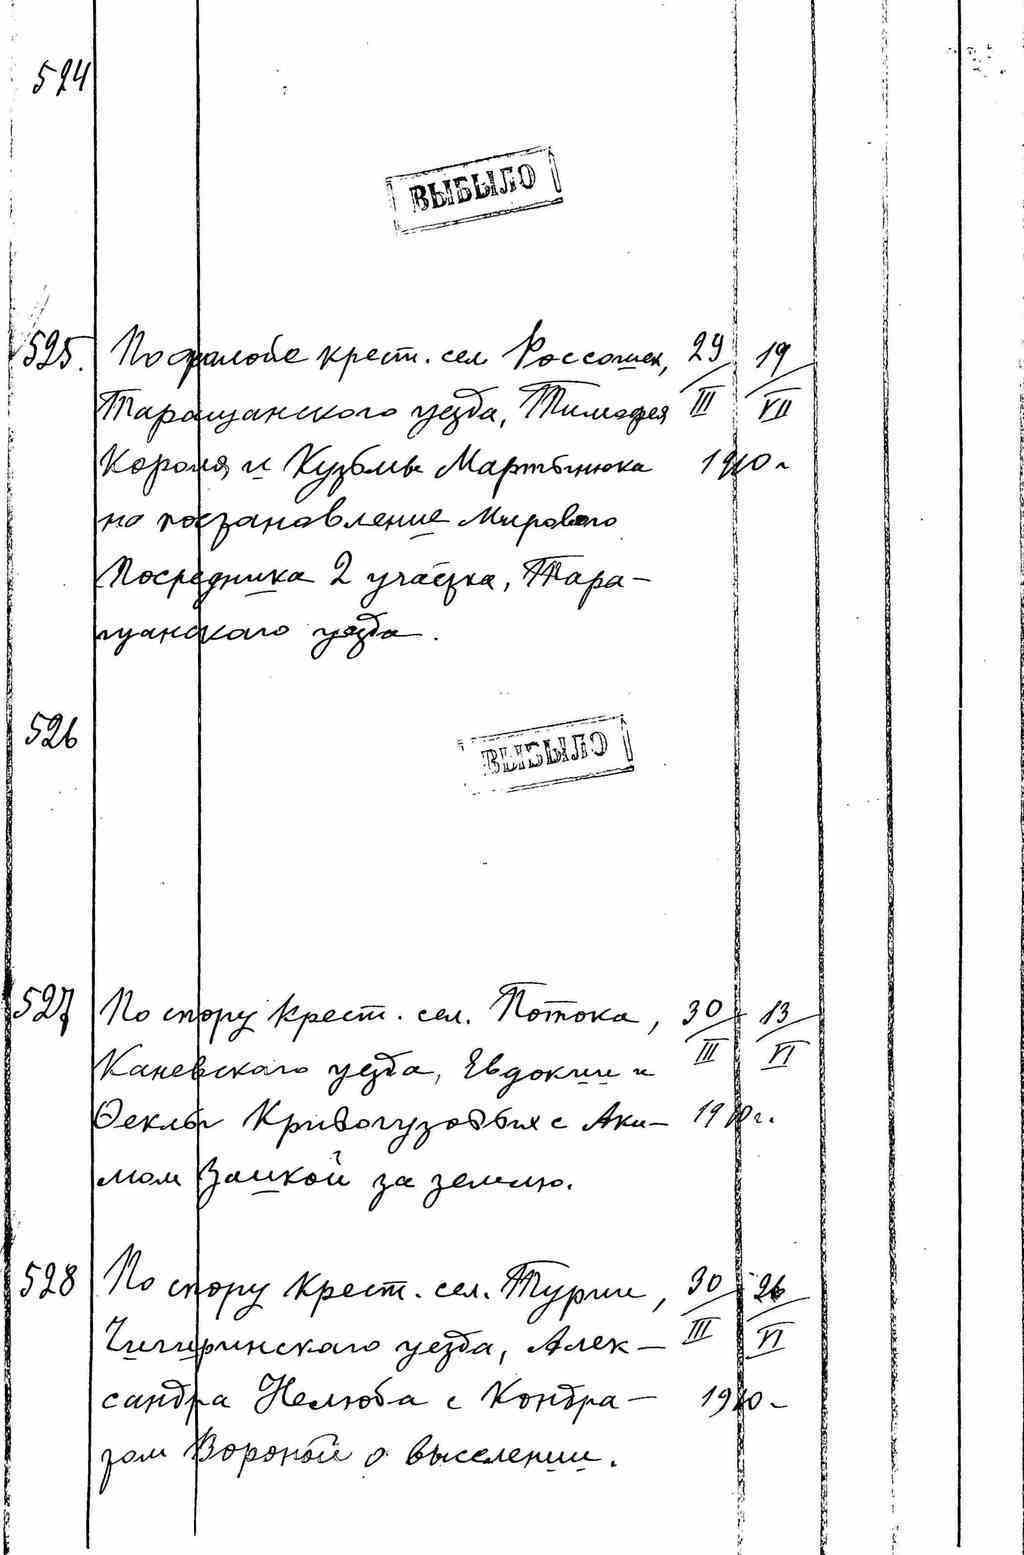 524
ВЫБЫЛО
525. По жалобе крест. сел Россошек, 29/III 19/VII
Таращанского уезда, Тимофея
Короля и Кузьмы Мартынюка 1910 г
на постановление Мирового
Посредника 2 участка, Тара-
щанского уезда.
526
ВЫБЫЛО
527 По спору крест. сел. Потока, 30/III 13/VI
Каневского уезда, Евдокии и
Феклы Кривогузовых с Аки- 1910 г.
мом Заикой за землю.
528 По спору крест. сел. Турии, 30/III 26/VI
Чигиринского уезда, Алек-
сандра Нелюба с Кондра- 1910
том Вороной о выселении.